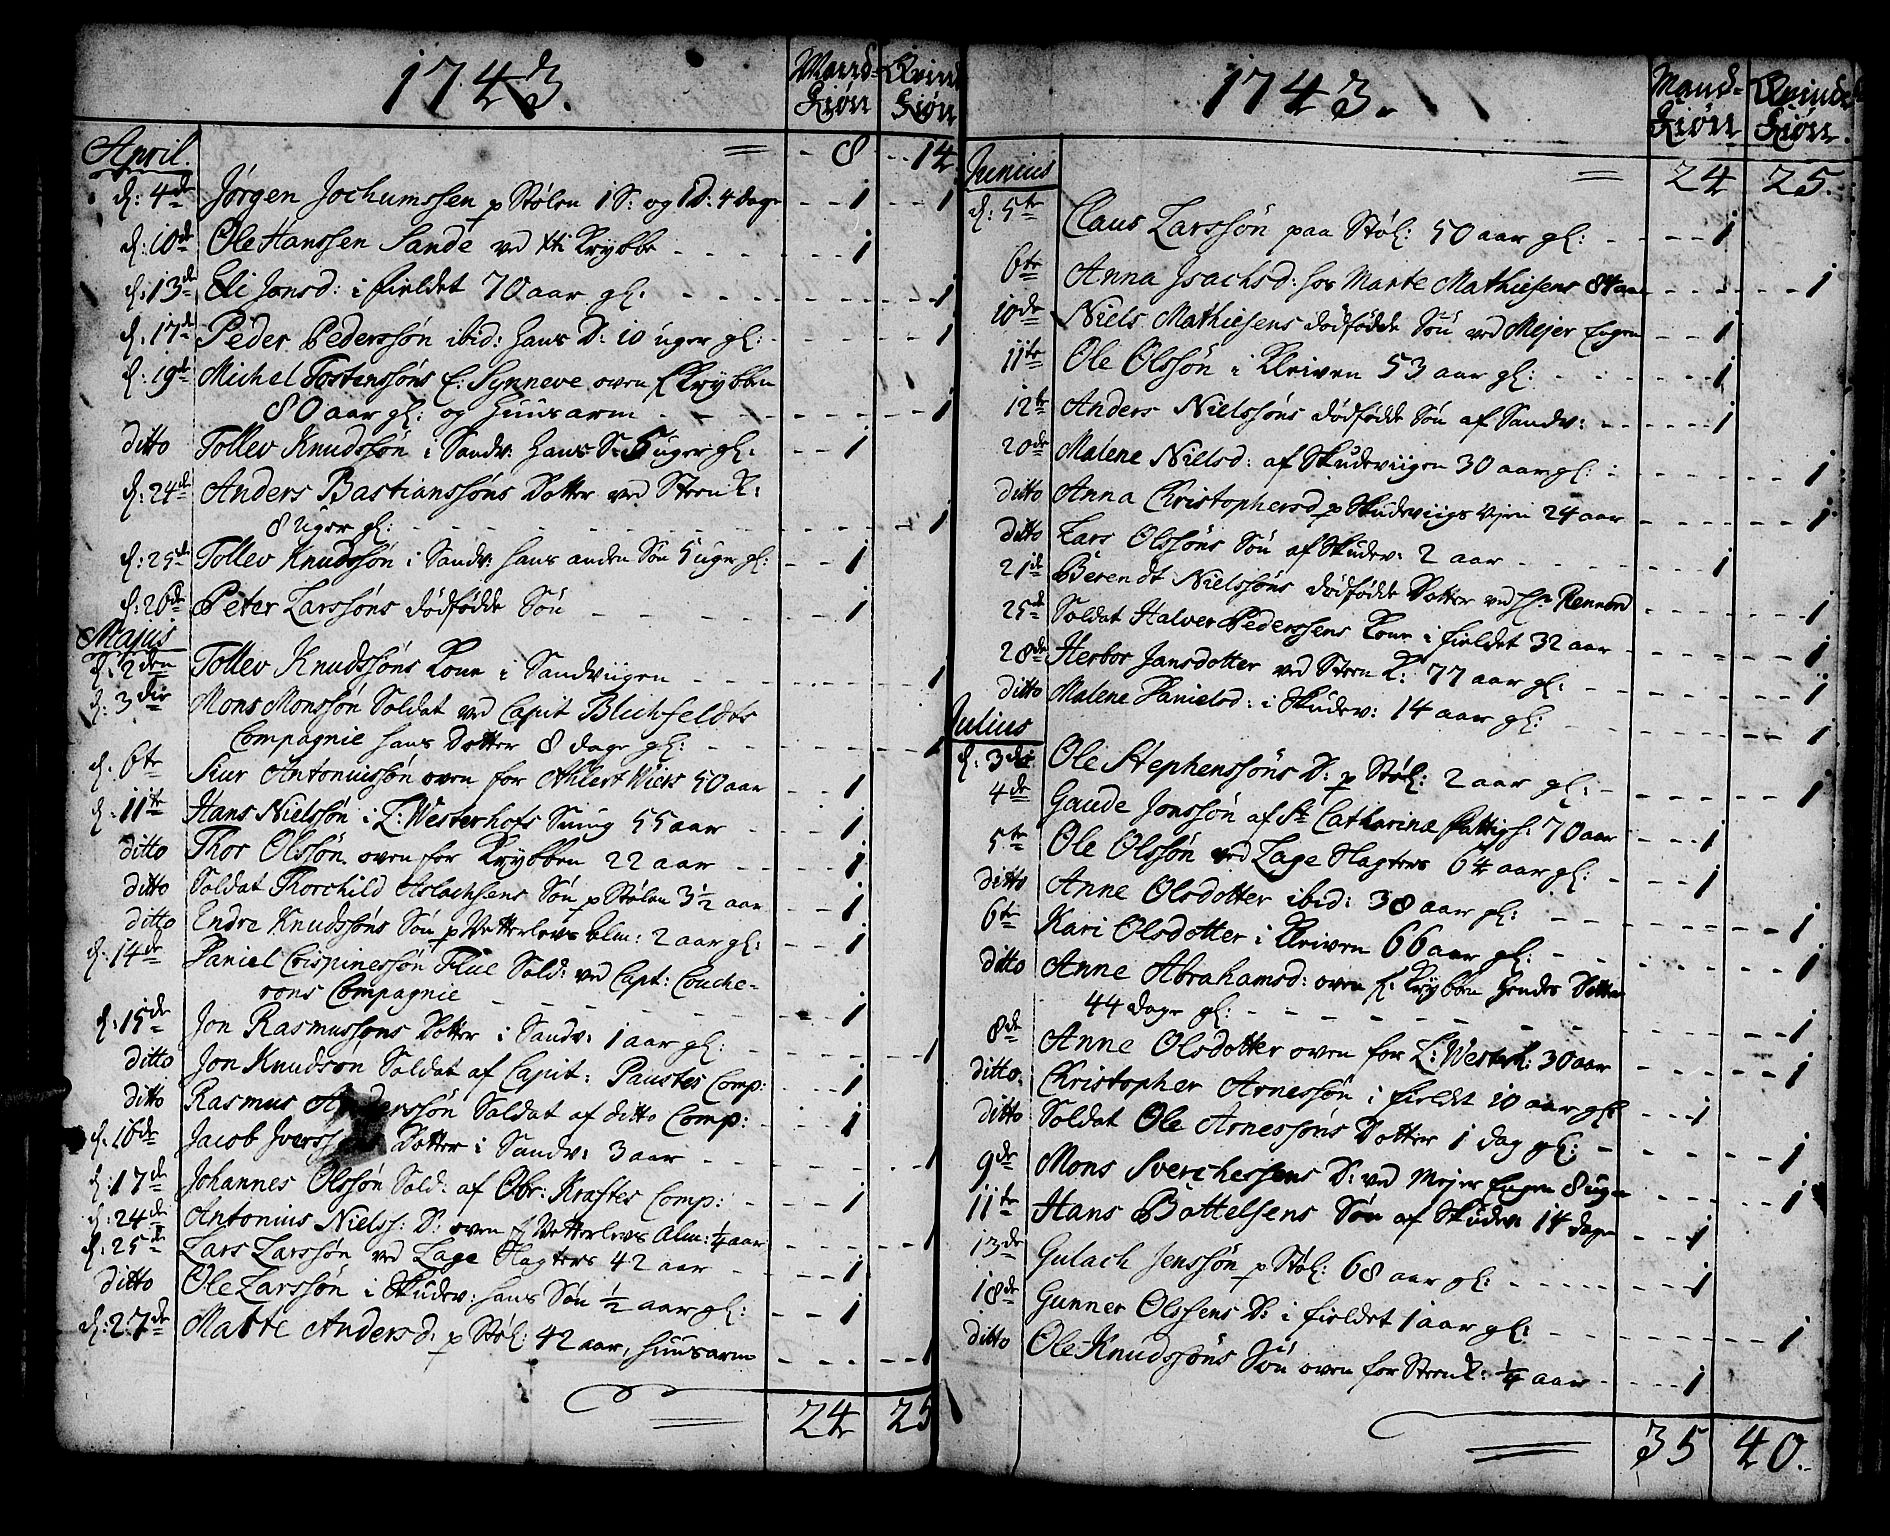 1743. Mand= Kiön Qvind Kiön
April. = - 8 - - 14
d: 4de Jørgen Jochumssen p Stølen 1 S: og 1 D: 4 dage - - 1 - - 1
d: 10de Ole Hanssen Sande ved Kti Krybbe - - - 1
d: 13de Eli Jonsd: i fieldet 70 aar gl: - - - 1
d: 17de Peder Pederssøn ibid: hans D: 10 uger gl: - - - 1
d: 19de Michel Tostenssøns E: Synneve oven f Krybben
80 aar gl: og huusarm - - - 1
ditto Tollev Knudssøn i Sandv: hans S: 5 uger gl: - - 1
d: 24de Anders Bastianssøns Dotter ved Steenk:
8 uger gl: - - - 1
d: 25de Tollev Knudssøn i Sandv: hans anden Søn 5 uger gl: - - 1
d: 26de Peter Larssøns dödfödde Søn - - - 1
Majus
d: 2den Tollev Knudssøns Kone i Sandviigen - - - 1
d: 3die Mons Monssøn Soldat ved Capit Blichfeldts
Compagnie hans Dotter 8 dage gl: - - - 1
d. 6te Siur Antoniussøn oven for Ahlert Wiers 50 aar - - 1
d. 11te Hans Nielssøn i L: Westerhofs Smug 55 aar - - 1
ditto Thor Olssøn oven for Krybben 22 aar - - 1
ditto Soldat Thorchild Aslachsens Søn p Stølen 3½ aar - - 1
ditto Endre Knudssøns Søn p Vetterlevs Alm: 2 aar gl: - - 1
d. 14de Daniel Crispinessøn Flue Sold: ved Capt: Couche-
rons Compagnie - - - 1
d. 15de Jon Rasmussøns Dotter i Sandv: 1 aar gl: - - - 1
ditto Jon Knudsøn Soldat af Capit: Paustes Comp: - - - 1
ditto Rasmus Anderssøn Soldat af ditto Comp: - - - 1
d. 16de Jacob Iverss Dotter i Sandv: 3 aar - - - 1
d: 17de Johannes Olssøn Sold: af Obr: Krastes Comp: - - - 1
d: 24de Antonius Nielss: D: oven f Vetterlevs Alm: ¼ aar - - - 1
d: 25de Lars Larssøn ved Lage Slagters 42 aar - - - 1
ditto Ole Larssøn i Skudev: hans Søn ½ aar gl: - - - 1
d: 27de Marte Andersd: p Støl: 42 aar, huusarm - - - 1
24 25
1743. Mand= Kiön Qvind Kiön.
Junius = 24 25.
d: 5te Claus Larssøn paa Støl: 50 aar gl: - - - 1
6te Anna Isachsd: hos Marte Mathiesens 84 aar - - - 1
10de Niels Mathiesens dødfødde Søn ved Mejer Engen - - 1
11te Ole Olssøn i Kleiven 53 aar gl: - - - 1
12te Anders Nielssøns dødfødde Søn af Sandv: - - - 1
20de Malene Nielsd: af Skudeviigen 30 aar gl: - - - 1
ditto Anna Christophersd p Skudeviigs Vjen 24 aar - - - 1
ditto Lars Olssøns Søn af Skudev: 2 aar - - - 1
21de Berendt Nielssøns dødfødde Dotter ved Hr Rennord - - - 1
25de Soldat Halver Pederssens Kone i fieldet 32 aar - - - 1
28de Herbor Jansdotter ved Steen K: 77 aar gl: - - - 1
ditto Malene Danielsd: i Skudev: 14 aar gl: - - - 1
Julius
d: 3die Ole Stephenssøns D: p Støl: 2 aar gl: - - - 1
4de Gaude Jonssøn af St Catharinæ fattigh: 70 aar - - 1
5te Ole Olssøn ved Lage Slagters 64 aar gl: - - - 1
ditto Anne Olsdotter ibid: 38 aar gl: - - - 1
6te Kari Olsdotter i Kleiven 66 aar gl: - - - 1
ditto Anne Abrahamsd: oven f: Krybben hendes Dotter
44 dage gl: - - - 1
8de Anne Olsdotter oven for L: Westerh: 30 aar - - - 1
ditto. Christopher Arnessøn i fieldet 10 aar gl: - - 1
ditto Soldat Ole Arnessøns Dotter 1 dag gl: - - - 1
9de Mons Sverchessens D: ved Mejer Engen 8 uger - - - 1
11te Hans Bottelsens Søn af Skudev: 14 dage - - 1
13de Gulach Jenssøn p Støl: 68 aar gl: - - - 1
18de Gunner Olssens D: i fieldet 1 aar gl: - - - 1
ditto Ole Knudssøns Søn oven for Steenk: ¼ aar - - - 1
35 40.